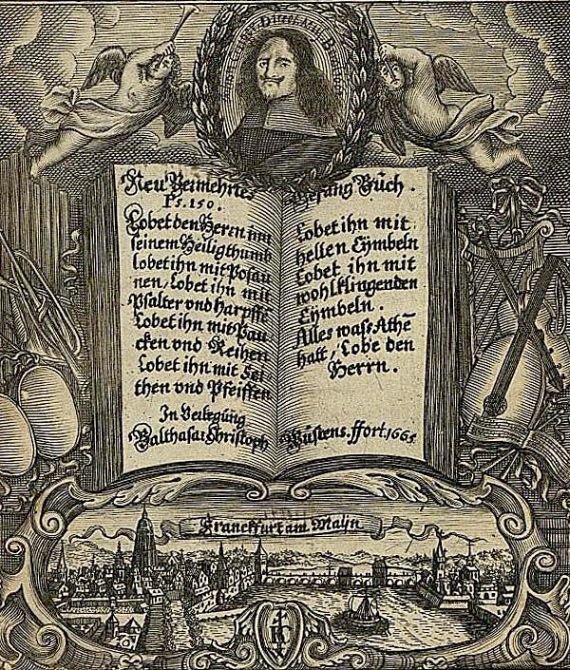 Neu Vermehrtes Gesang Büch.
Ps. 150.
Lobet den Herrn inn
seinem Heiligthumb
lobet ihn mit Posau
nen, lobet ihn mit
Psalter vnd Harpffe
Lobet ihn mit Pau
cken vnd Reihen
Lobet ihn mit Sei
then vnd Pfeiffen
Lobet ihn mit
hellen Cymbeln
Lobet ihn mit
wohlklingenden
Cymbeln.
Alles waſs Athē
hatt, Lobe den
Herrn.
In Verlegung
Balthasar Christoph Wüstens. ffort. 1665
Franckfurt am Mäijn